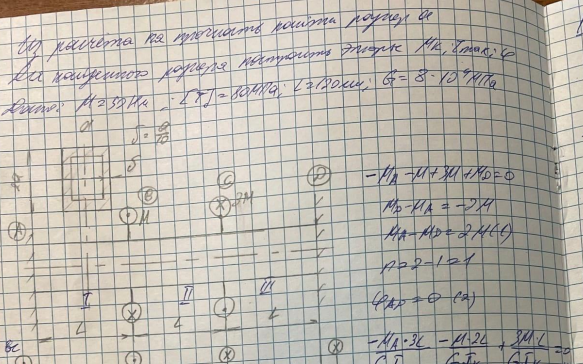 Из расчёта на прочность найти размер a
Для найденного размера построить эпюры Mк, τmax, φ
Дано: M=30Нм; [τ]=80МПа; L=120мм; G=8·10⁴МПа
a
δ=a/10
δ
B
C
D
M
3M
A
I
II
III
L
L
L
-MA-M+3M+MD=0
MD-MA=-2M
MA-MD=2M (1)
n=2-1=1
φAD=0 (2)
-MA·3L -M·2L + 3M·L =0